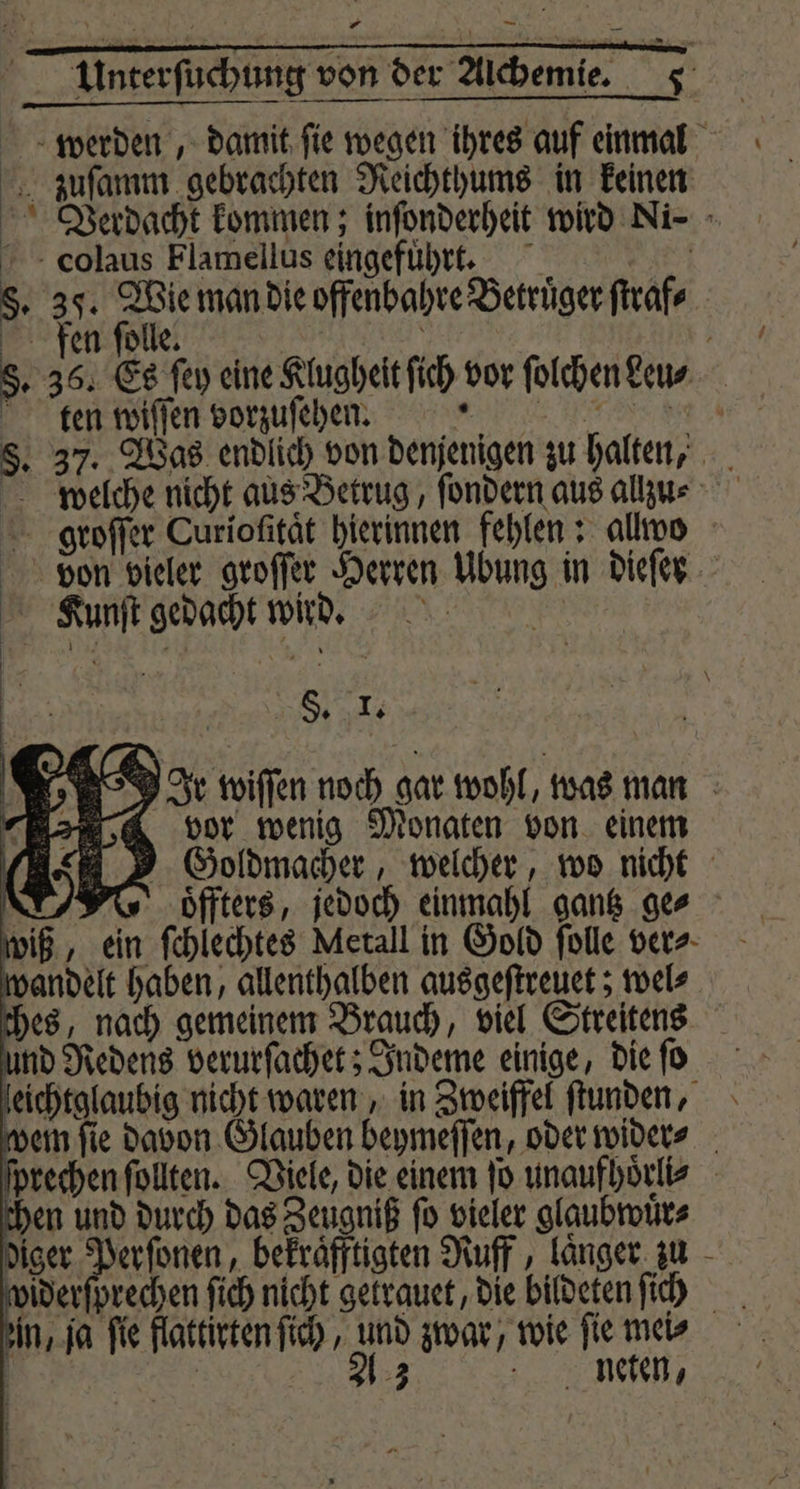 Unterſuchung von der Alchemie. 5
werden, damit ſie wegen ihres auf einmal
zuſamm gebrachten Reichthums in keinen
Verdacht kommen; inſonderheit wird Ni-
colaus Flamellus eingeführt.
§. 35. Wie man die offenbahre Betrüger ſtraf⸗
fen ſolle.
§. 36. Es ſey eine Klugheit ſich vor ſolchen Leu⸗
ten wiſſen vorzuſehen.
§. 37. Was endlich von denjenigen zu halten,
welche nicht aus Betrug, ſondern aus allzu⸗
groſſer Curioſität hierinnen fehlen: allwo
von vieler groſſer Herren Ubung in dieſer
Kunſt gedacht wird.
§. 1.
WIr wiſſen noch gar wohl, was man
vor wenig Monaten von einem
Goldmacher, welcher, wo nicht
öffters, jedoch einmahl gantz ge⸗
wiß, ein ſchlechtes Metall in Gold ſolle ver⸗
wandelt haben, allenthalben ausgeſtreuet; wel⸗
ches, nach gemeinem Brauch, viel Streitens
und Redens verurſachet; Indeme einige, die ſo
leichtglaubig nicht waren, in Zweiffel ſtunden,
wem ſie davon Glauben beymeſſen, oder wider⸗
ſprechen ſollten. Viele, die einem ſo unaufhörli⸗
chen und durch das Zeugniß ſo vieler glaubwür⸗
diger Perſonen, bekräfftigten Ruff, länger zu
widerſprechen ſich nicht getrauet, die bildeten ſich
ein, ja ſie flattirten ſich, und zwar, wie ſie mei⸗
A 3 neten,